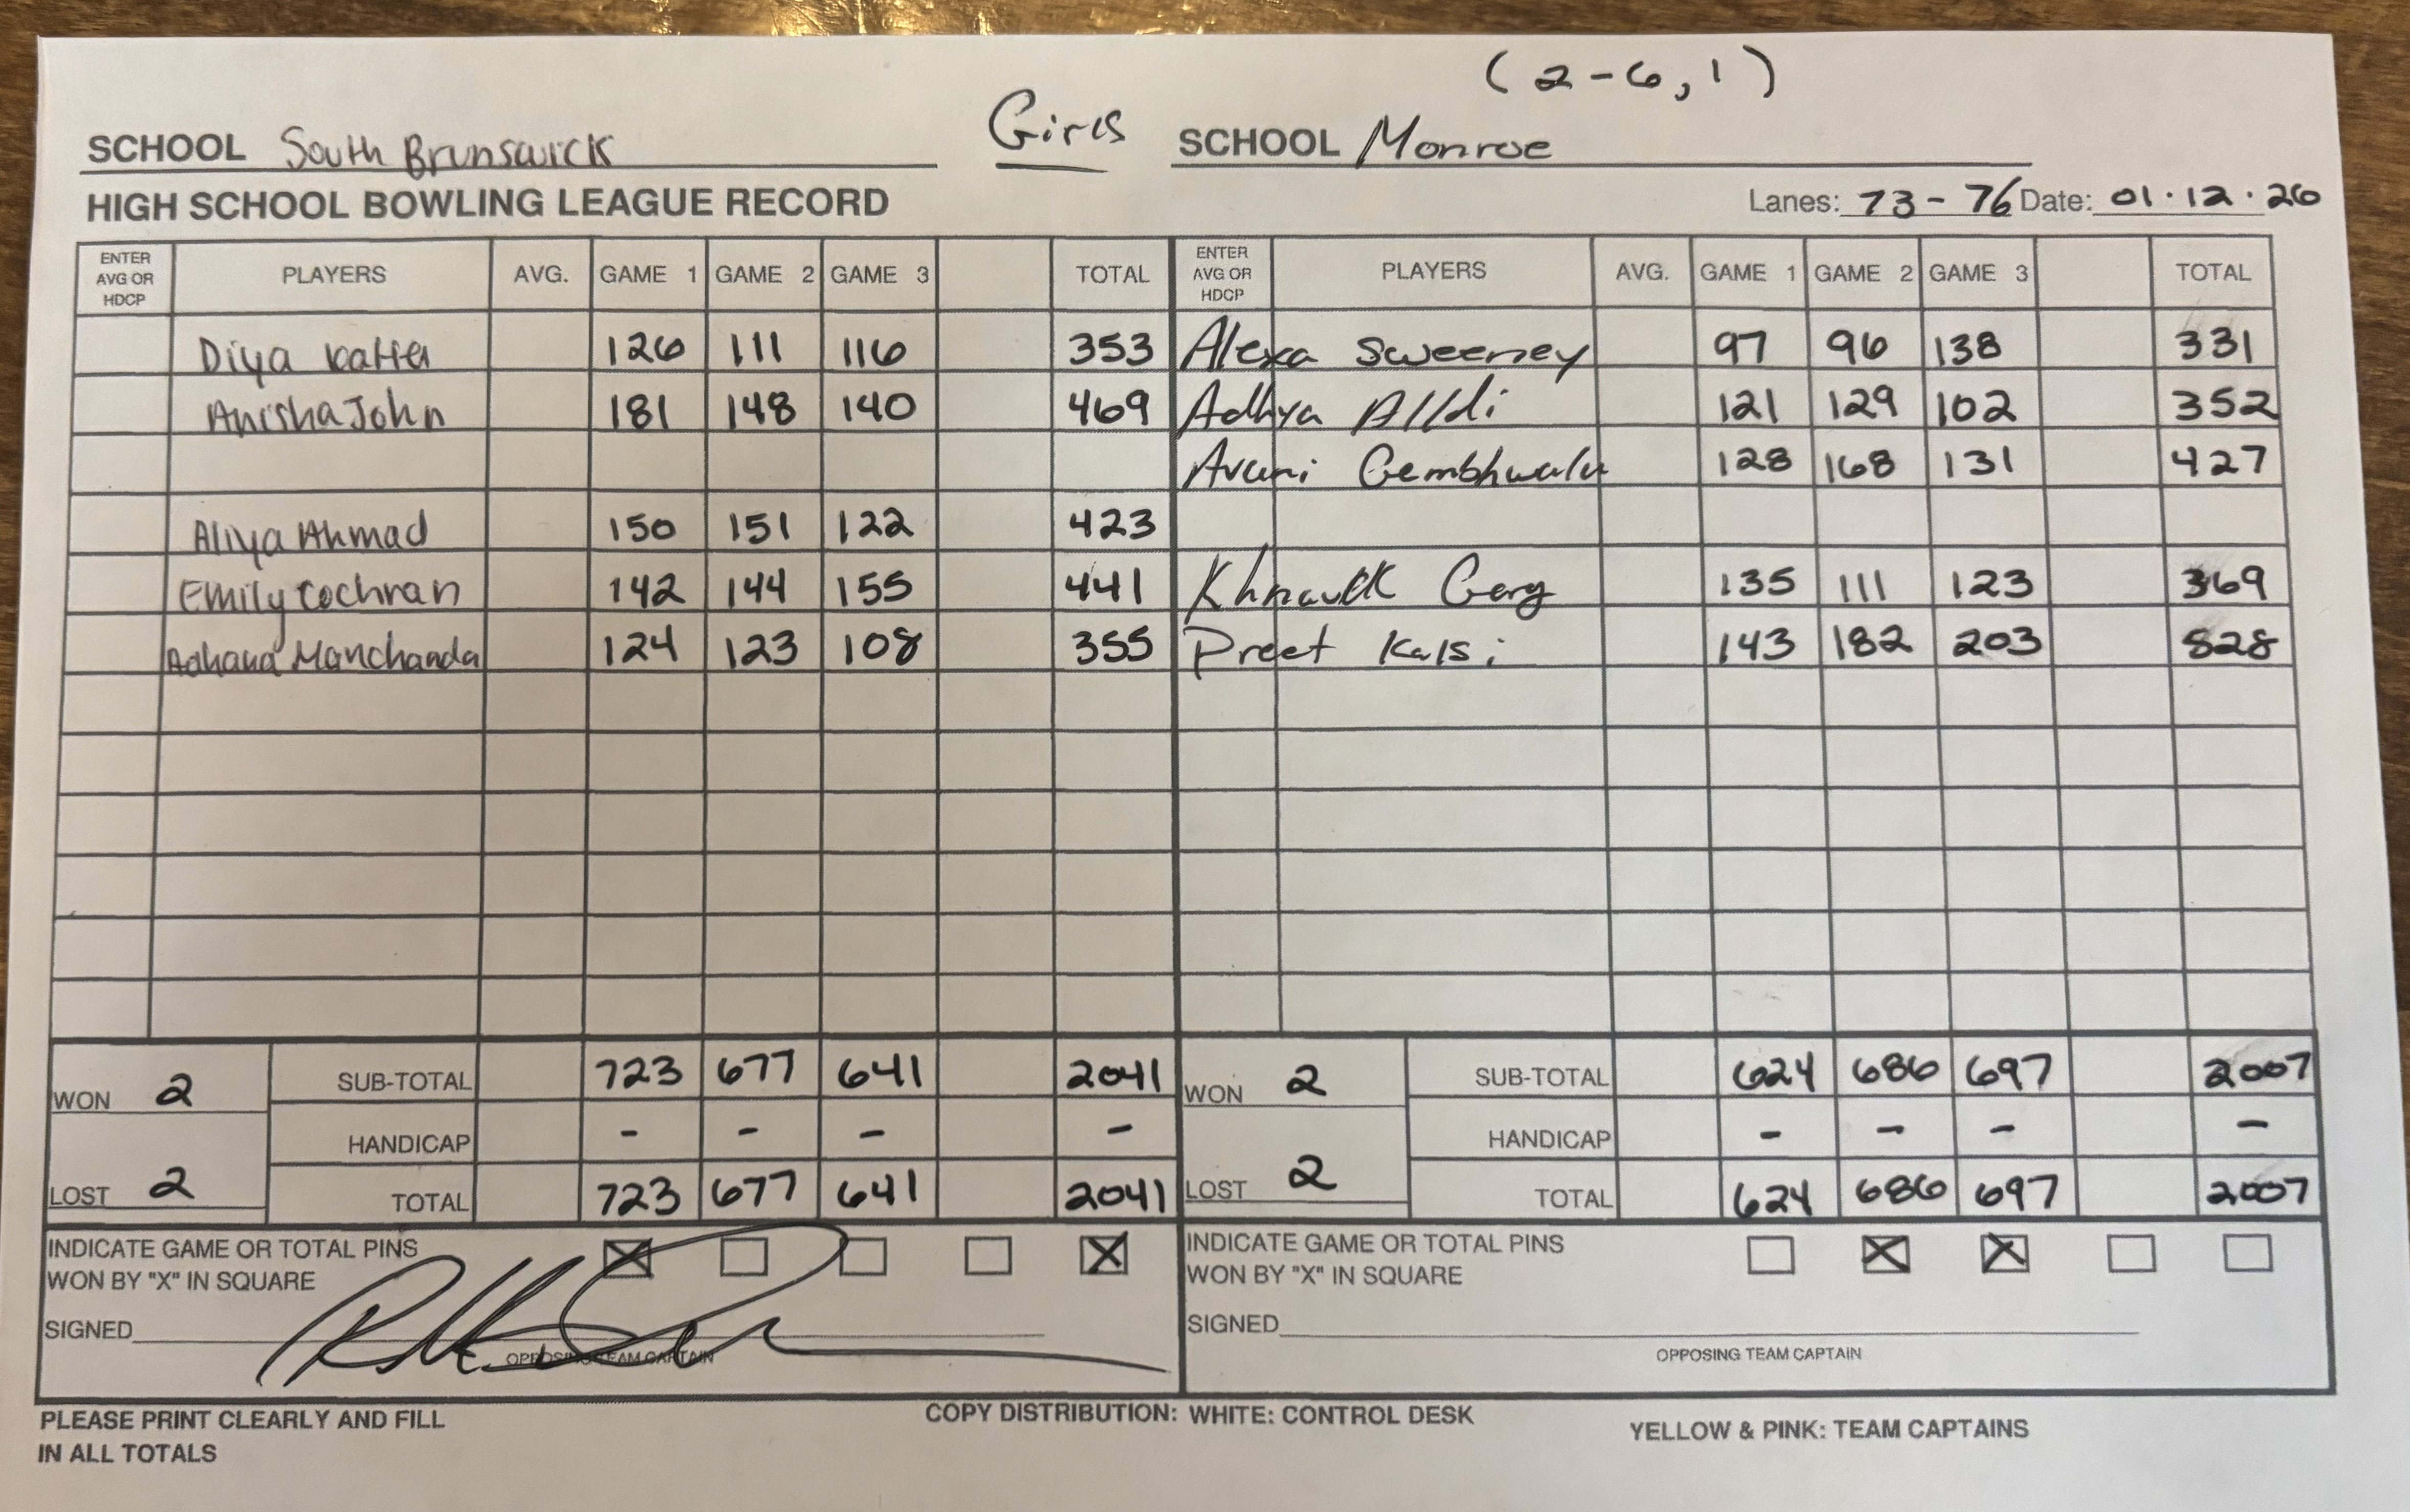 (2-6, 1)
SCHOOL South Brunswick Girls SCHOOL Monroe
HIGH SCHOOL BOWLING LEAGUE RECORD Lanes: 73-76 Date: 01.12.26
ENTER AVG OR HDCP PLAYERS AVG. GAME 1 GAME 2 GAME 3 TOTAL ENTER AVG OR HDCP PLAYERS AVG. GAME 1 GAME 2 GAME 3 TOTAL
Diya 126 111 116 353 Alexa Sweeney 97 96 138 331
Anisha John 181 148 140 469 Adhya 121 129 102 352
Avani 128 168 131 427
Aliya Ahmad 150 151 122 423
Emily Cochran 142 144 155 441 Garg 135 111 123 369
Manchanda 124 123 108 355 Preet Kalsi 143 182 203 528
WON 2 SUB-TOTAL 723 677 641 2041 WON 2 SUB-TOTAL 624 686 697 2007
HANDICAP - - - - HANDICAP - - - -
LOST 2 TOTAL 723 677 641 2041 LOST 2 TOTAL 624 686 697 2007
INDICATE GAME OR TOTAL PINS X X INDICATE GAME OR TOTAL PINS X X
WON BY "X" IN SQUARE WON BY "X" IN SQUARE
SIGNED SIGNED
OPPOSING TEAM CAPTAIN OPPOSING TEAM CAPTAIN
PLEASE PRINT CLEARLY AND FILL COPY DISTRIBUTION: WHITE: CONTROL DESK YELLOW & PINK: TEAM CAPTAINS
IN ALL TOTALS